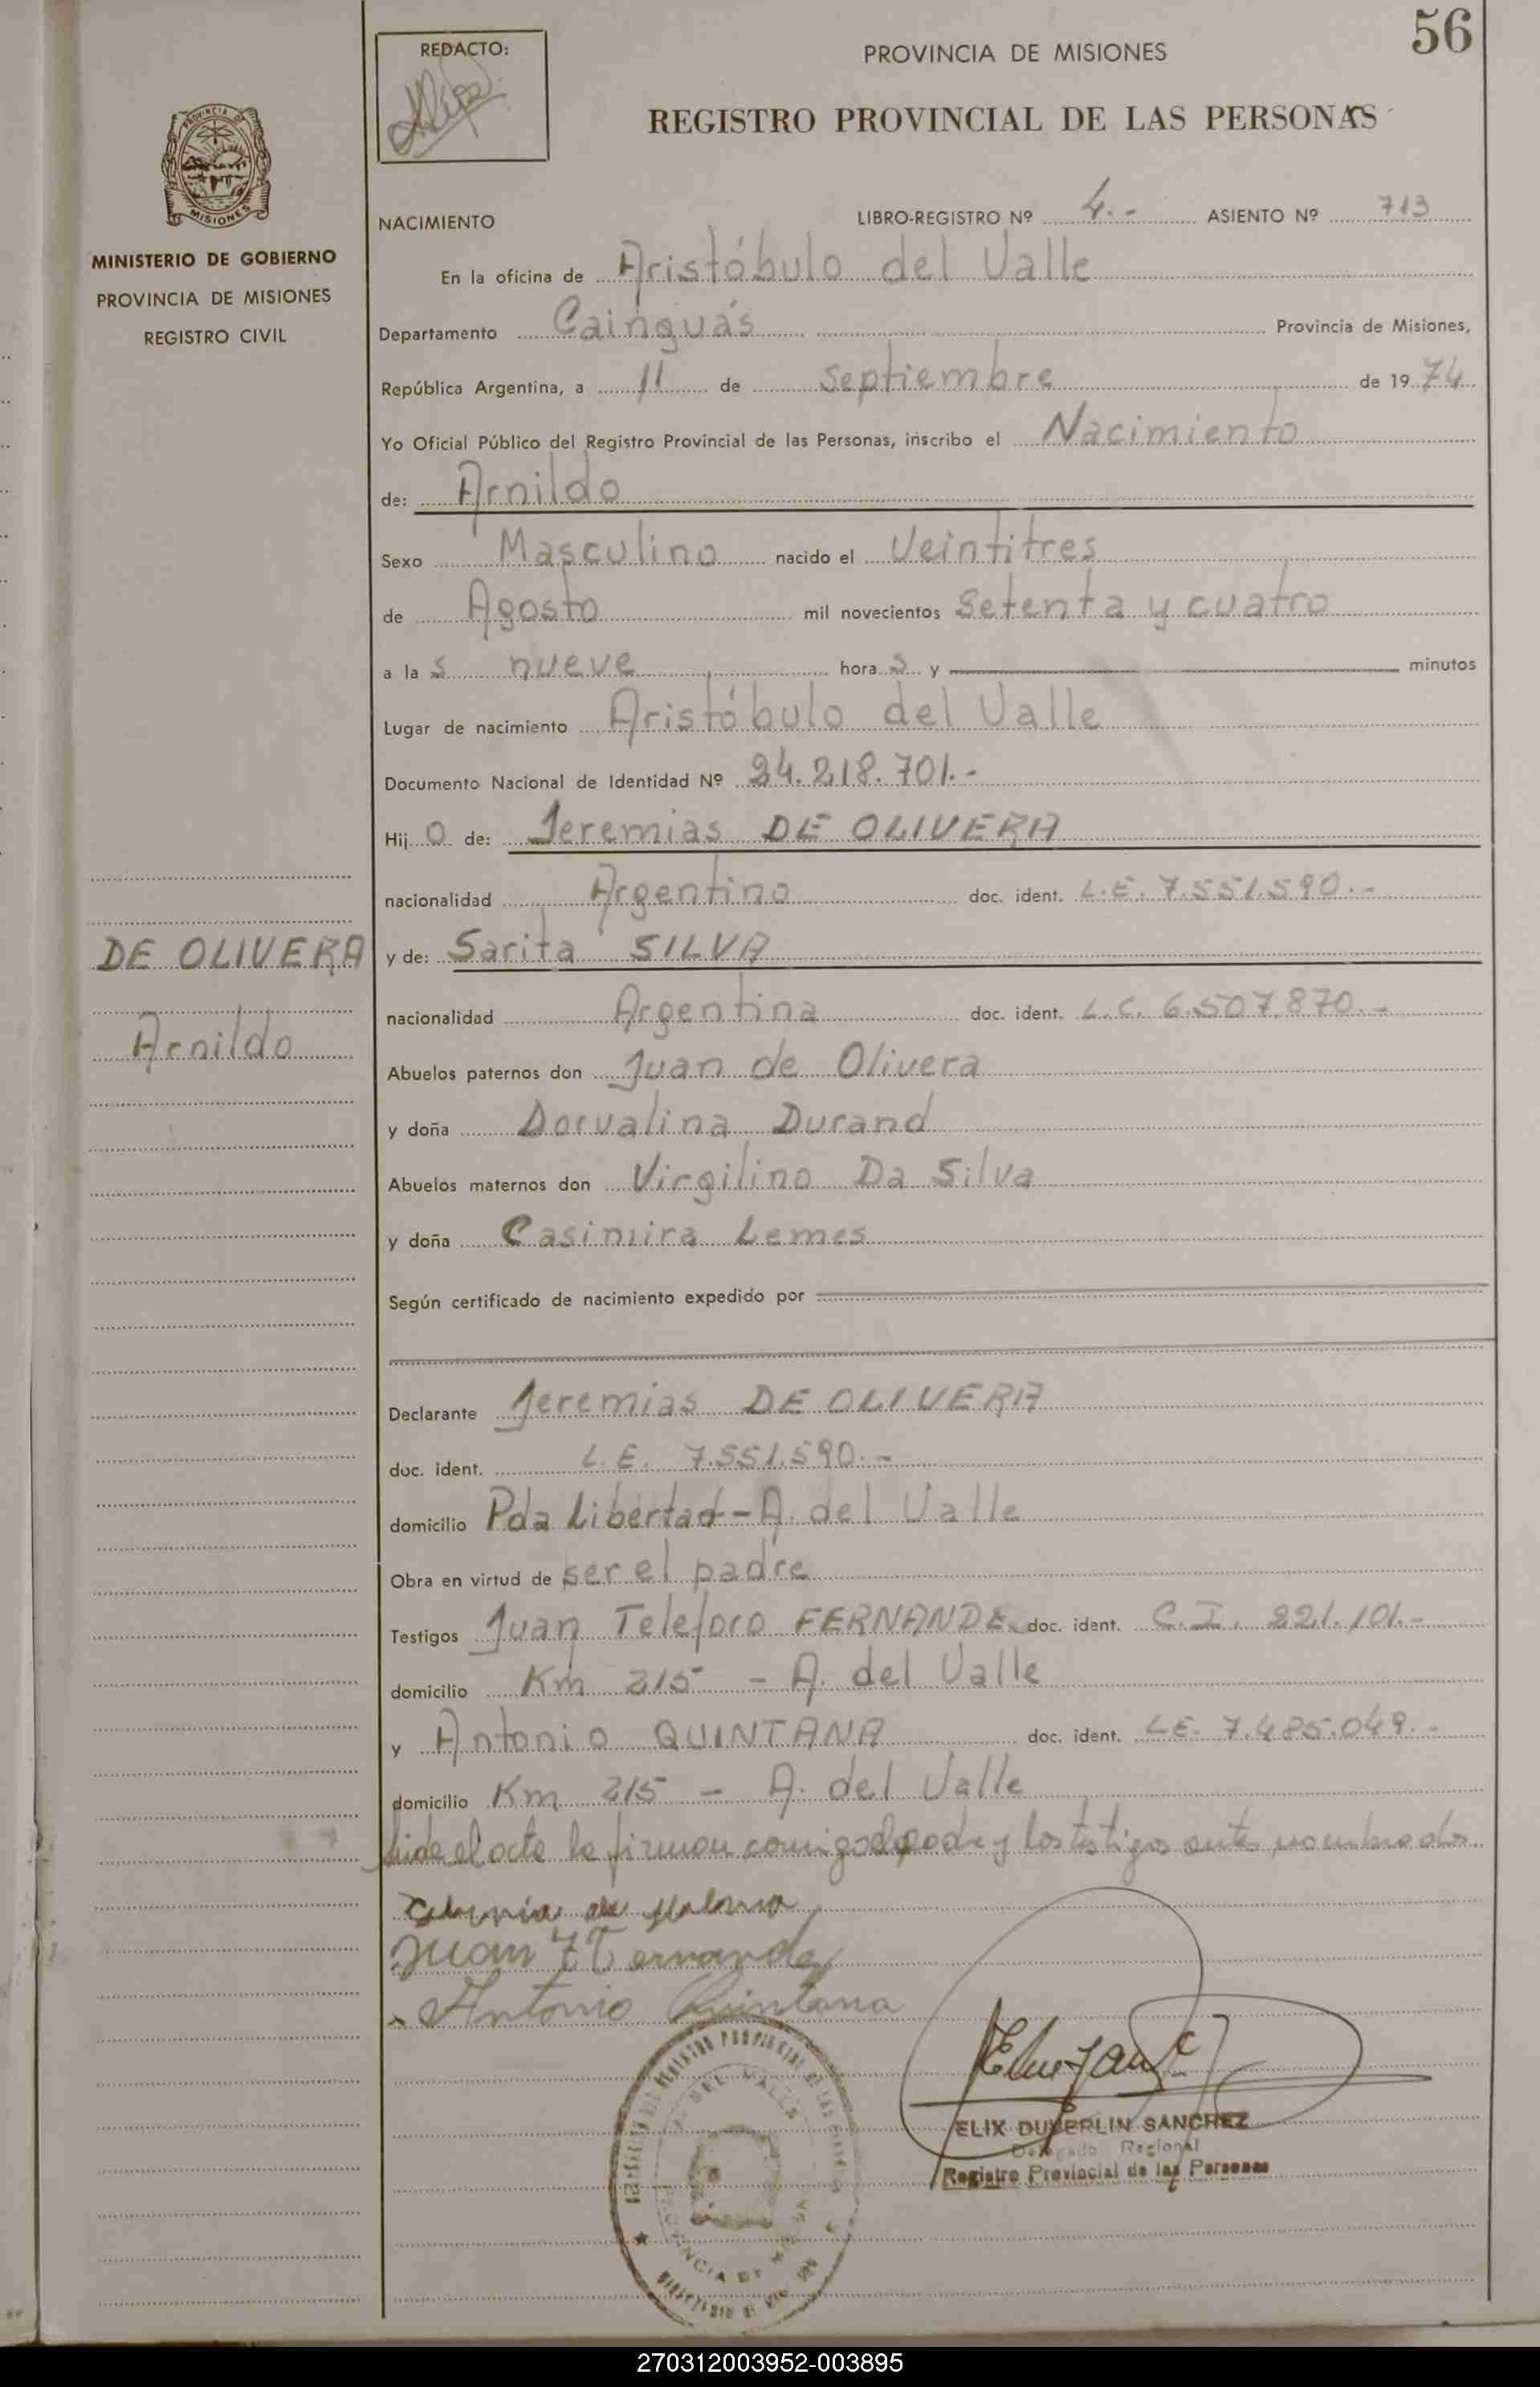 56
REDACTO:
PROVINCIA DE MISIONES
REGISTRO PROVINCIAL DE LAS PERSONAS
PROVINCIA DE
MISIONES
MINISTERIO DE GOBIERNO
PROVINCIA DE MISIONES
REGISTRO CIVIL
NACIMIENTO LIBRO-REGISTRO Nº 4.- ASIENTO Nº 713
En la oficina de Aristóbulo del Valle
Departamento Cainguás Provincia de Misiones,
República Argentina, a 11 de septiembre de 19 74
Yo Oficial Público del Registro Provincial de las Personas, inscribo el Nacimiento
de: Arnildo
Sexo Masculino nacido el Veintitres
de Agosto mil novecientos setenta y cuatro
a la s nueve hora s y minutos
Lugar de nacimiento Aristóbulo del Valle
Documento Nacional de Identidad Nº 24.218.701.-
Hij o de: Jeremias DE OLIVERA
nacionalidad Argentino doc. ident. L.E. 7.551.590.-
DE OLIVERA
Arnildo
y de: Sarita SILVA
nacionalidad Argentina doc. ident. L.C. 6.507.870.-
Abuelos paternos don Juan de Olivera
y doña Dorvalina Durand
Abuelos maternos don Virgilino Da Silva
y doña Casimira Lemes
Según certificado de nacimiento expedido por
Declarante Jeremias DE OLIVERA
doc. ident. L.E. 7.551.590.-
domicilio Pda Libertad - A. del Valle
Obra en virtud de ser el padre
Testigos Juan Teleforo FERNANDEZ doc. ident. C.I. 221.101.-
domicilio Km 215 - A. del Valle
y Antonio QUINTANA doc. ident. L.E. 7.485.049.-
domicilio Km 215 - A. del Valle
el acta la firman conmigo el padre y los testigos antes nombrados
Juan Fernandez
Antonio Quintana
ELIX DUBERLIN SANCHEZ
Delegado Regional
Registro Provincial de las Personas
270312003952-003895